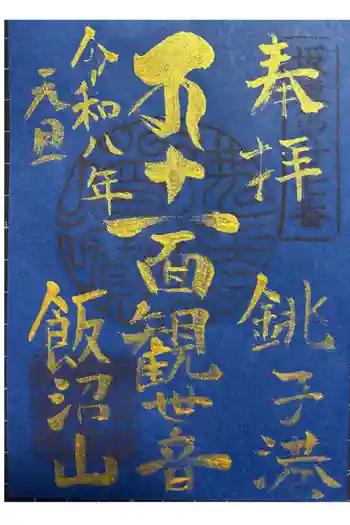 奉拝
銚子港
十一面観世音
令和八年
元旦
飯沼山